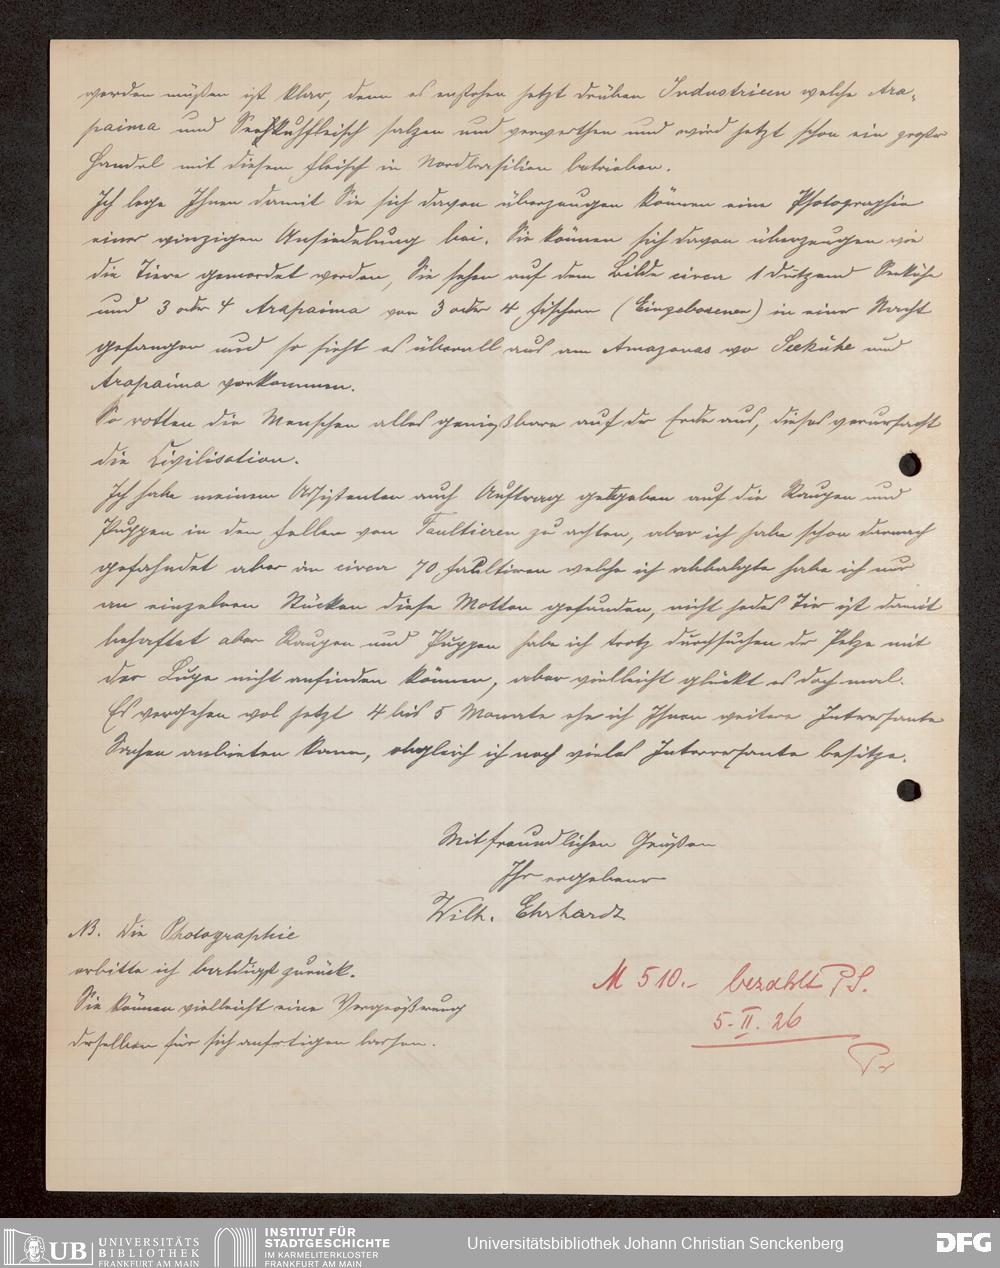 werden müßen ist klar, denn es enstehen jetzt drüben Industrieen welche Ara-
paima und Seekuhfleisch salzen und verwerthen und wird jetzt schon ein großer
Handel mit diesem Fleisch in Nordbrasilien betrieben.
Ich lege Ihnen damit Sie sich davon überzeugen können eine Photographie
einer winzigen Ansiedelung bei. Sie können sich davon überzeugen wie
die Tiere gemordet werden, Sie sehen auf dem Bilde circa 1 Dutzend Seekühe
und 3 oder 4 Arapaima von 3 oder 4 Fischern (Eingeborenen) in einer Nacht
gefangen und so sieht es überall aus am Amazonas wo Seekühe und
Arapaima vorkommen.
So rotten die Menschen alles genießbare auf der Erde aus, dieses verursacht
die Civilisation.
Ich habe meinem Assistenten auch Auftrag gegeben auf die Raupen und
Puppen in den Fellen von Faultieren zu achten, aber ich habe schon darnach
gefahndet aber in circa 70 Faultieren welche ich abbalgte habe ich nur
an einzelnen Stücken diese Motten gefunden, nicht jedes Tier ist damit
behaftet aber Raupen und Puppen habe ich trotz durchsuchen der Pelze mit
der Lupe nicht auffinden können, aber vielleicht glückt es doch mal.
Es vergehen wol jetzt 4 bis 5 Monate ehe ich Ihnen weitere Interesante
Sachen anbieten kann, obgleich ich noch vieles Interresante besitze.
Mit freundlichen Grüßen
Ihr ergebener
Wilh. Ehrhardt
NB. Die Photographie
erbitte ich baldigst zurück.
Sie können vielleicht eine Vergrößerung
derselben für sich anfertigen lassen.
M 510.- bezahlt P.S.
5. II. 26
Pr
UB UNIVERSITÄTS
BIBLIOTHEK
FRANKFURT AM MAIN
INSTITUT FÜR
STADTGESCHICHTE
IM KARMELITERKLOSTER
FRANKFURT AM MAIN
Universitätsbibliothek Johann Christian Senckenberg
DFG